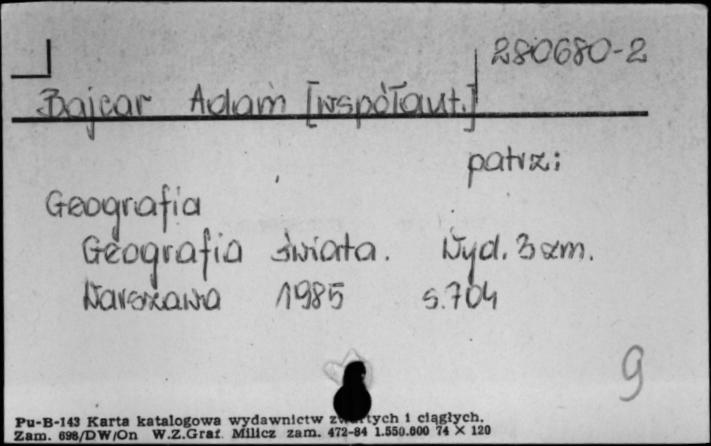 280680-2
Bajcar Adam [współaut.]
patrz:
Geografia
Geografia świata. Wyd. 3 zm.
Warszawa 1985 s. 704
9
Pu-B-143 Karta katalogowa wydawnictw zwartych i ciągłych.
Zam. 698/DW/On W.Z.Graf. Milicz zam. 472-84 1.550.000 74 X 120